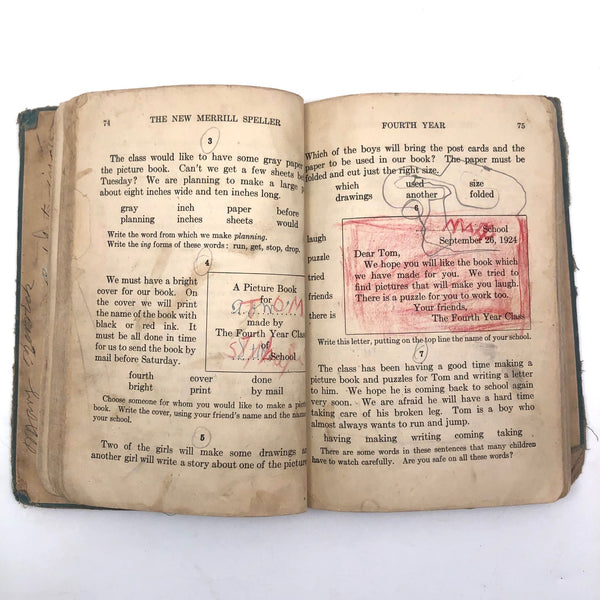 74 THE NEW MERRILL SPELLER
3
The class would like to have some gray paper
the picture book. Can't we get a few sheets be
Tuesday? We are planning to make a large p
about eight inches wide and ten inches long.
gray inch paper before
planning inches sheets would
Write the word from which we make planning.
Write the ing forms of these words: run, get, stop, drop.
4
We must have a bright
cover for our book. On
the cover we will print
the name of the book with
black or red ink. It
must be all done in time
for us to send the book by
mail before Saturday.
A Picture Book
for
made by
The Fourth Year Class
of
School
fourth cover done
bright print by mail
Choose someone for whom you would like to make a pict
book. Write the cover, using your friend's name and the name
your school.
5
Two of the girls will make some drawings an
another girl will write a story about one of the picture
FOURTH YEAR 75
Which of the boys will bring the post cards and the
paper to be used in our book? The paper must be
folded and cut just the right size.
which used size
drawings another folded
6
laugh
puzzle
tried
friends
there is
School
September 26, 1924
Dear Tom,
We hope you will like the book which
we have made for you. We tried to
find pictures that will make you laugh.
There is a puzzle for you to work too.
Your friends,
The Fourth Year Class
Write this letter, putting on the top line the name of your school.
7
The class has been having a good time making a
picture book and puzzles for Tom and writing a letter
to him. We hope he is coming back to school again
very soon. We are afraid he will have a hard time
taking care of his broken leg. Tom is a boy who
almost always wants to run and jump.
having making writing coming taking
There are some words in these sentences that many children
have to watch carefully. Are you safe on all these words?